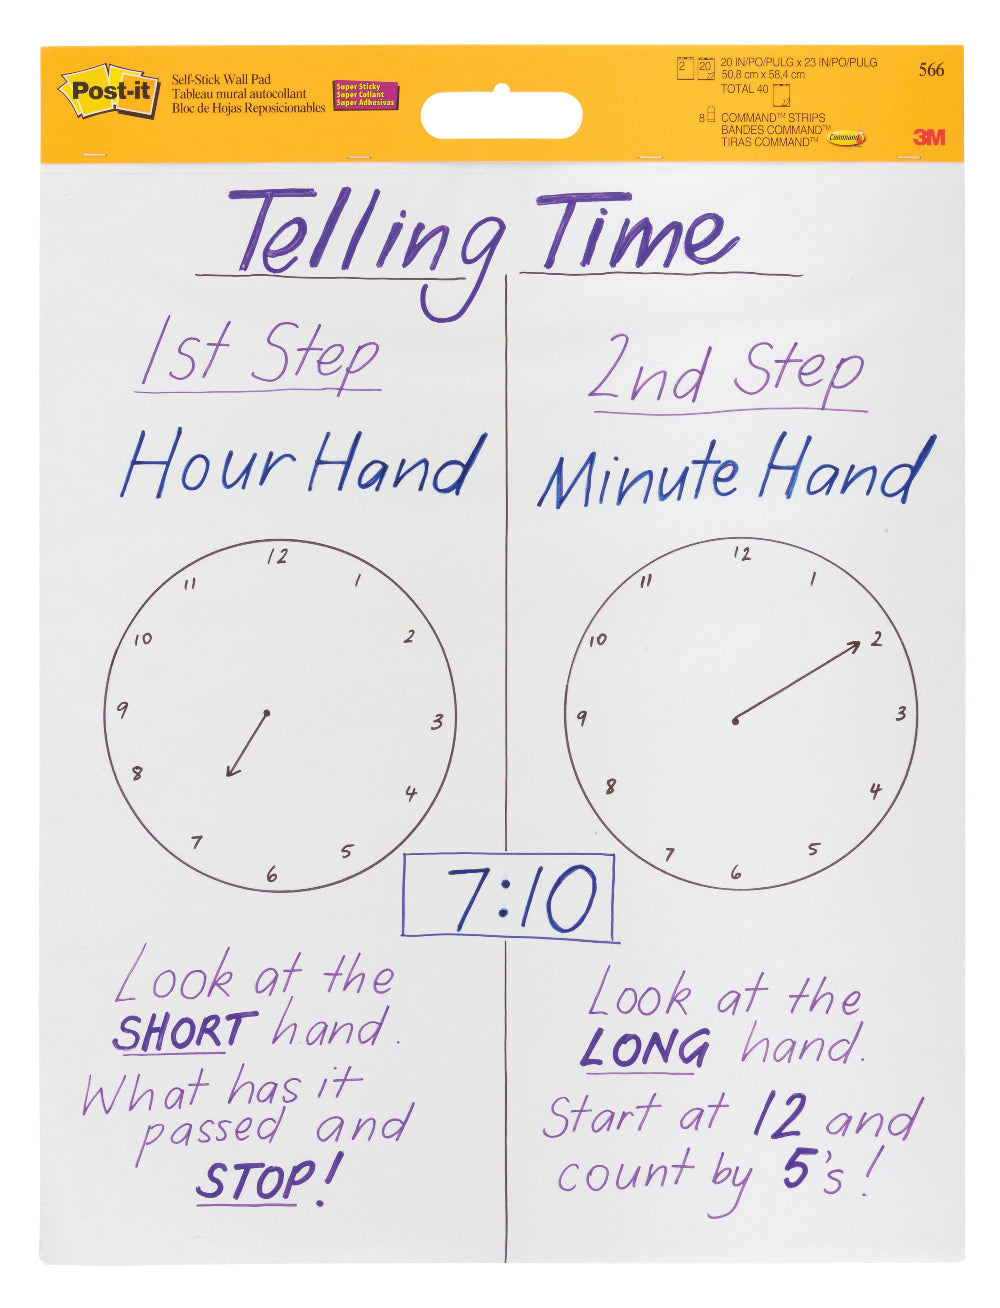 Post-it
Self-Stick Wall Pad
Tableau mural autocollant
Bloc de Hojas Reposicionables
Super Sticky
Super Collant
Super Adhesivas
2
20
20 IN/PO/PULG x 23 IN/PO/PULG
50,8 cm x 58,4 cm
TOTAL 40
8
COMMAND™ STRIPS
BANDES COMMAND™
TIRAS COMMAND™
Command
566
3M
Telling Time
1st Step
Hour Hand
12
11
1
10
2
9
3
8
4
7
5
6
2nd Step
Minute Hand
12
11
1
10
2
9
3
8
4
7
5
6
7:10
Look at the
SHORT hand.
What has it
passed and
STOP!
Look at the
LONG hand.
Start at 12 and
count by 5's!